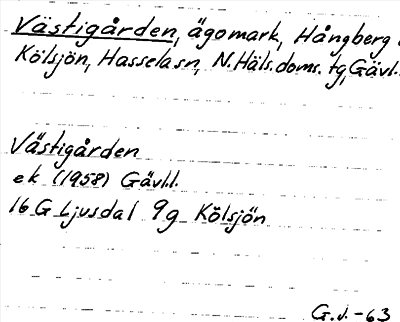 Västigården, ägomark, Hångberg
Kölsjön, Hassela sn, N.Häls.doms. tg, Gävl.
Västigården
ek (1958) Gävl.l.
16 G Ljusdal 9g Kölsjön
G.J.-63